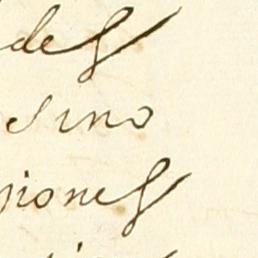 des
sino
siones